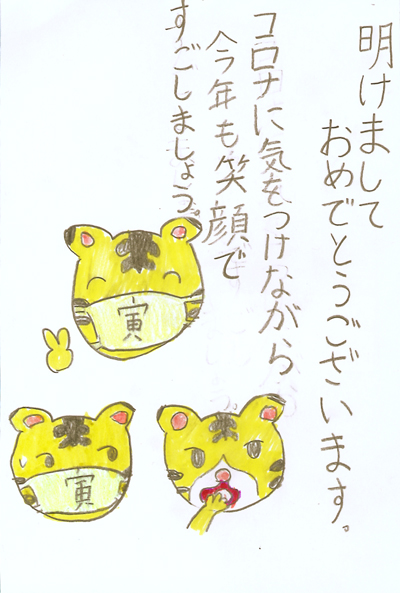 明けまして
おめでとうございます。
コロナに気をつけながら
今年も笑顔で
すごしましょう。
寅
寅